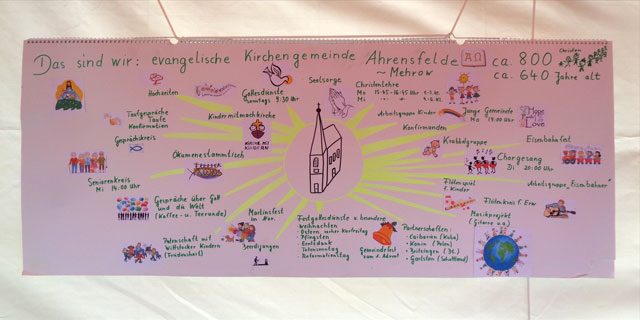 Das sind wir: evangelische Kirchengemeinde Ahrensfelde
~ Mehrow
ca. 800 Christen
ca. 640 Jahre alt
Hochzeiten
Gottesdienste
Sonntags 9:30 Uhr
Seelsorge
Christenlehre
Mo 15.45-16.45 Uhr
Mi
Taufgespräche
Taufe
Konfirmation
Kindermitmachkirche
KIRCHE MIT KINDERN
Arbeitsgruppe Kinder
Junge Gemeinde
Mo 19:00 Uhr
Love
Konfirmanden
Gesprächskreis
Ökumenestammtisch
Krabbelgruppe
Chorgesang
Di 20:00 Uhr
Eismbahnfest
Seniorenkreis
Mi 14:00 Uhr
Arbeitsgruppe "Eismbahner"
Gespräche über Gott
und die Welt
(Kaffee- u. Teerunde)
Flötenspiel
f. Kinder
Flötenkreis f. Erw.
Musikprojekt
(Gitarre u.a.)
Martinsfest
im Nov.
Patenschaft mit
Wittstocker Kindern
(Friedrichsf.)
Beerdigungen
Festgottesdienste u. besondere
- Weihnachten
- Ostern vorher Karfreitag
- Pfingsten
- Erntedank
- Totensonntag
- Reformationstag
Gemeindefest
zum 1. Advent
Partnerschaften:
(Kuba)
- Konin (Polen)